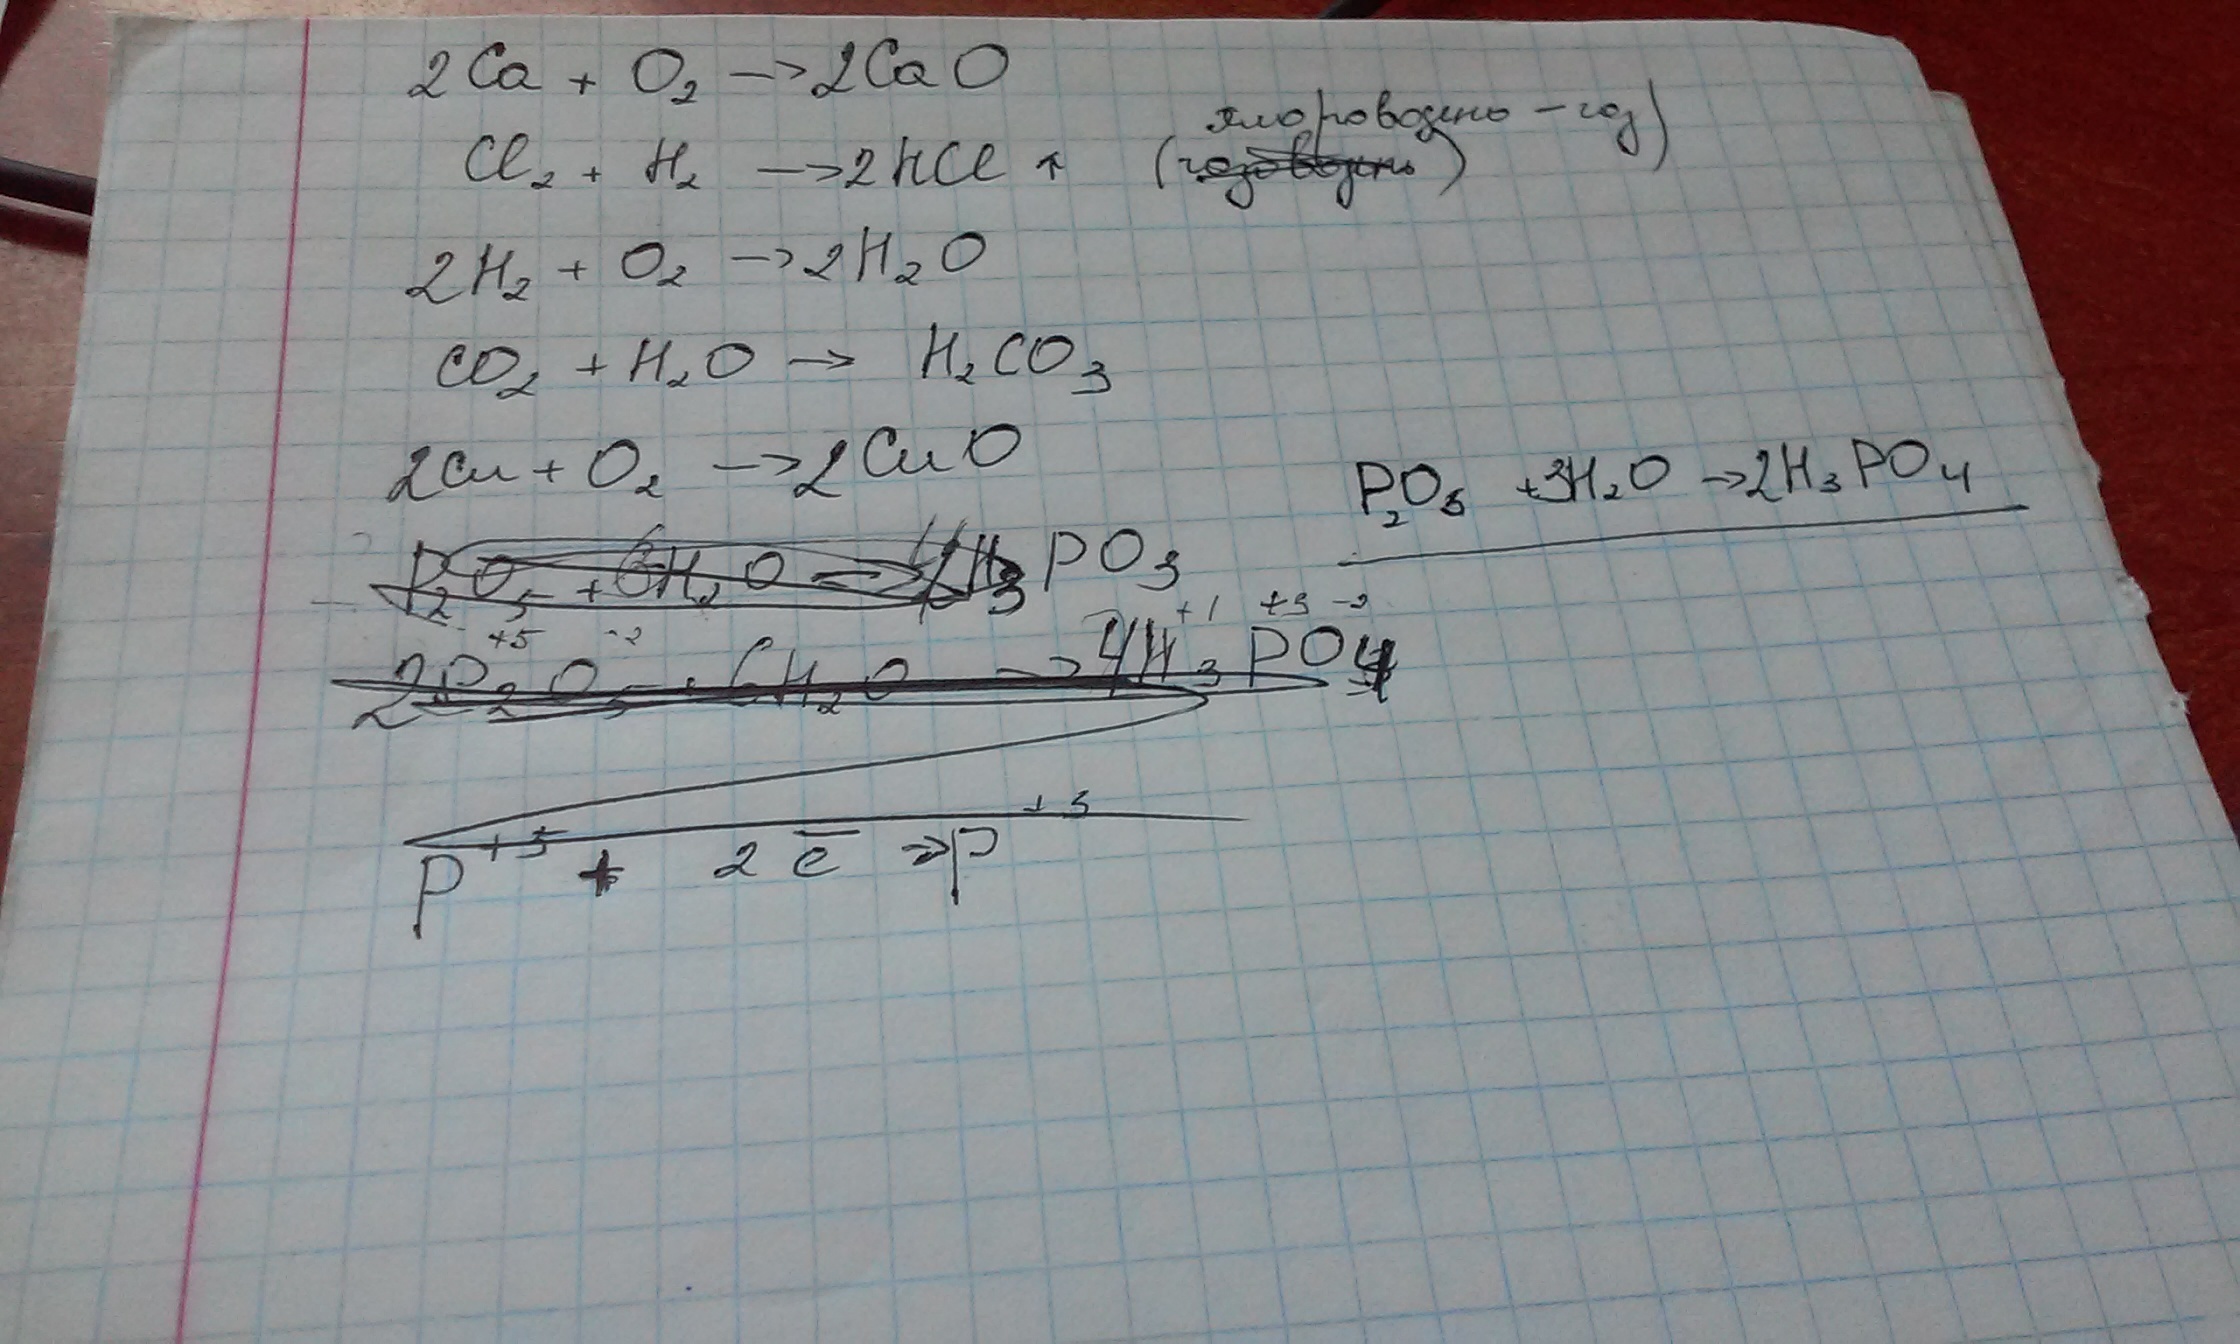 2Ca + O₂ → 2CaO
Cl₂ + H₂ → 2HCl ↑ (хлороводно - газ)
2H₂ + O₂ → 2H₂O
CO₂ + H₂O → H₂CO₃
2Cu + O₂ → 2CuO
P₂O₅ + 3H₂O → 2H₃PO₄
P₂O₅ + 6H₂O → 4H₃PO₃
2P₂⁺⁵O₅⁻² + 6H₂O → 4H₃⁺¹P⁺⁵O₄⁻²
P⁺⁵ + 2e̅ → P⁺³